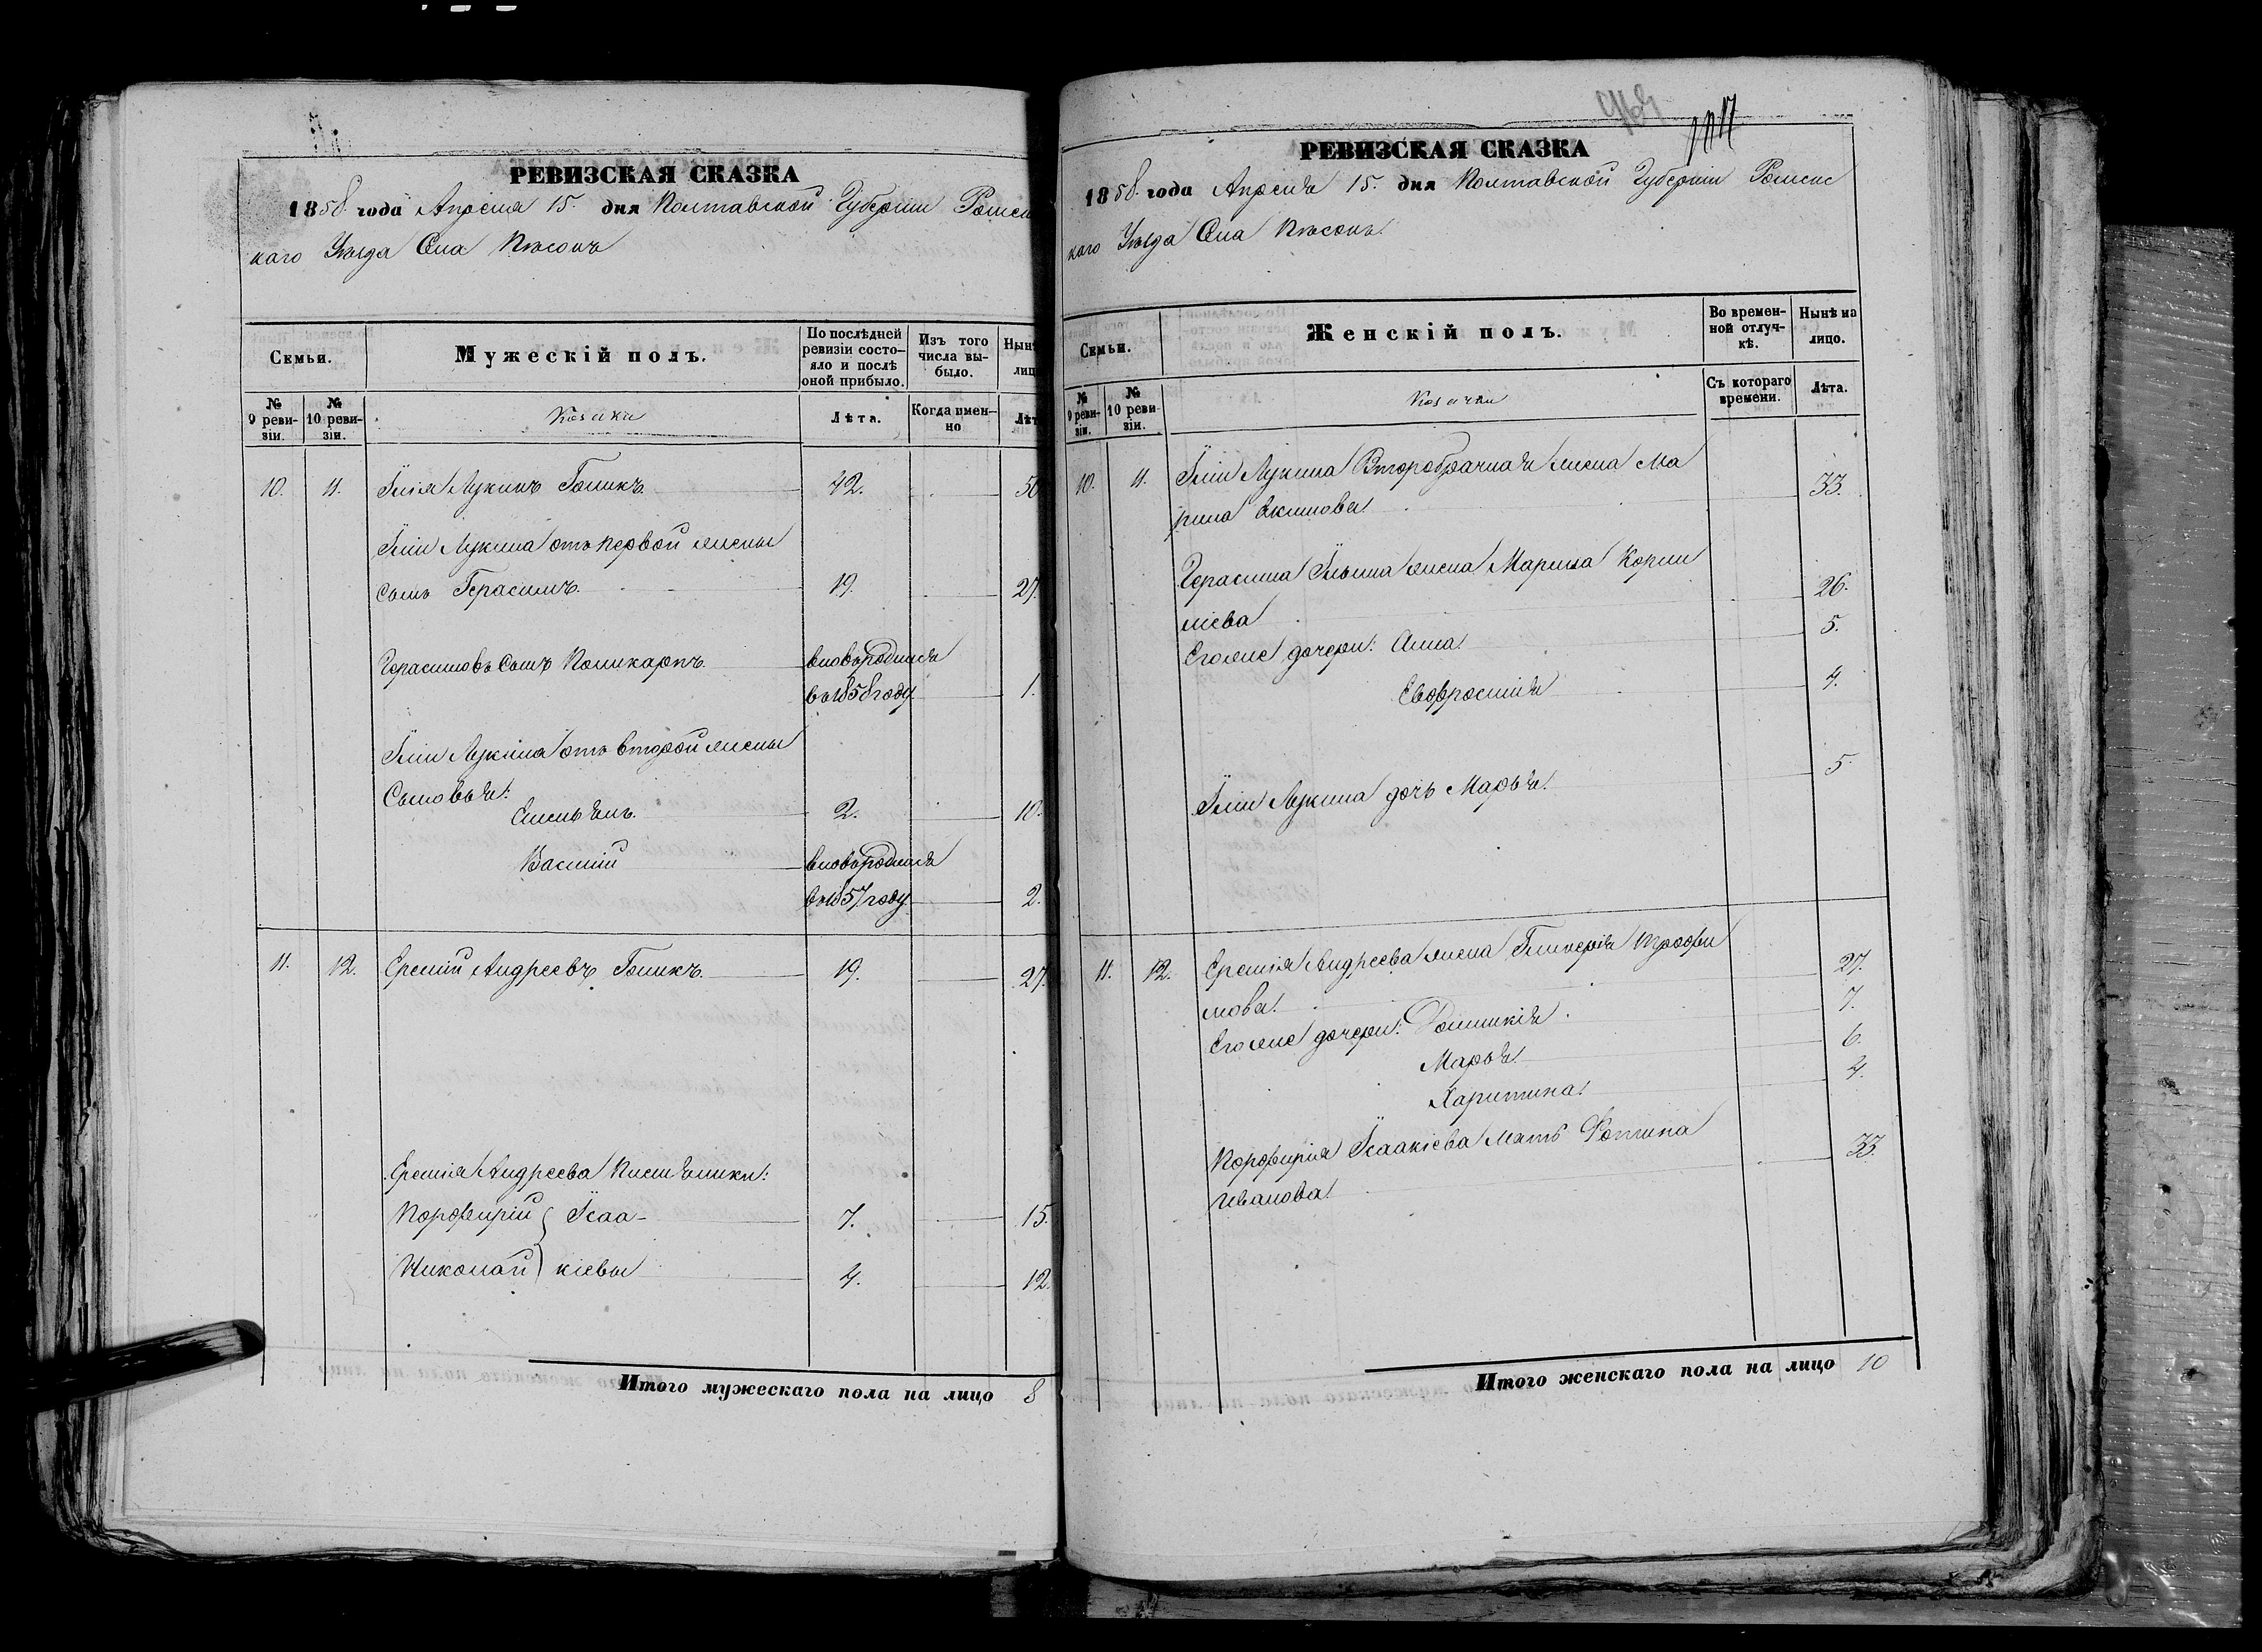 РЕВИЗСКАЯ СКАЗКА
1858 года Апреля 15. дня Полтавской Губерніи Роменс
каго Уѣзда Села Пѣсокъ
Семьи.
Мужескій полъ.
По послѣдней ревизіи состо-яло и послѣ оной прибыло.
Изъ того числа вы-было.
Нын
лиц
№ 9 реви-зіи.
№ 10 реви-зіи.
Козаки
Лѣта.
Когда имен-но
Лѣт
10. 11. Ілія Лукинъ Голикъ 42. 50
Іліи Лукина отъ первой жены
сынъ Герасимъ. 19. 27.
Герасимовъ Сынъ Поликарпъ. вновь родился
въ 1858 году. 1.
Іліи Лукина отъ второй жены
Сыновья:
Емельянъ. 2. 10.
Василій вновь родился
въ 1857 году. 2.
11. 12. Еремій Андреевъ Голикъ. 19. 27.
Еремія Андреева племянники:
Порфирій Ісаа- 7. 15.
Николай кіевы 4. 12.
Итого мужескаго пола на лицо 8
РЕВИЗСКАЯ СКАЗКА
1858 года Апреля 15. дня Полтавской Губерніи Роменс
каго Уѣзда Села Пѣсокъ.
Семьи.
Женскій полъ.
Во времен-ной отлуч-кѣ.
Нынѣ на лицо.
№ 9 реви-зіи.
№ 10 реви-зіи.
Козачки
Съ котораго времени.
Лѣта.
10. 11. Іліи Лукина Второбрачная жена Ма
рина Екимова. 33.
Герасима Ильина жена Марина Корни
ліева 26.
Его же дочери: Анна. 5.
Евфросинія 4.
Іліи Лукина дочь Марья. 5.
11. 12. Еремія Андреева жена Гликерія Трофи
мова. 27.
Его же дочери: Домникія. 7.
Марья. 6.
Харитина. 4.
Порфирія Ісаакіева мать Фотина
Иванова. 33.
Итого женскаго пола на лицо 10